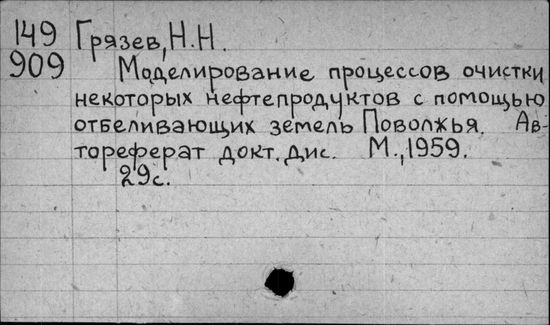 149 Грязев, Н.Н.
909 Моделирование процессов очистки
некоторых нефтепродуктов с помощью
отбеливающих земель Поволжья. Ав-
тореферат докт. дис. М., 1959.
29с.